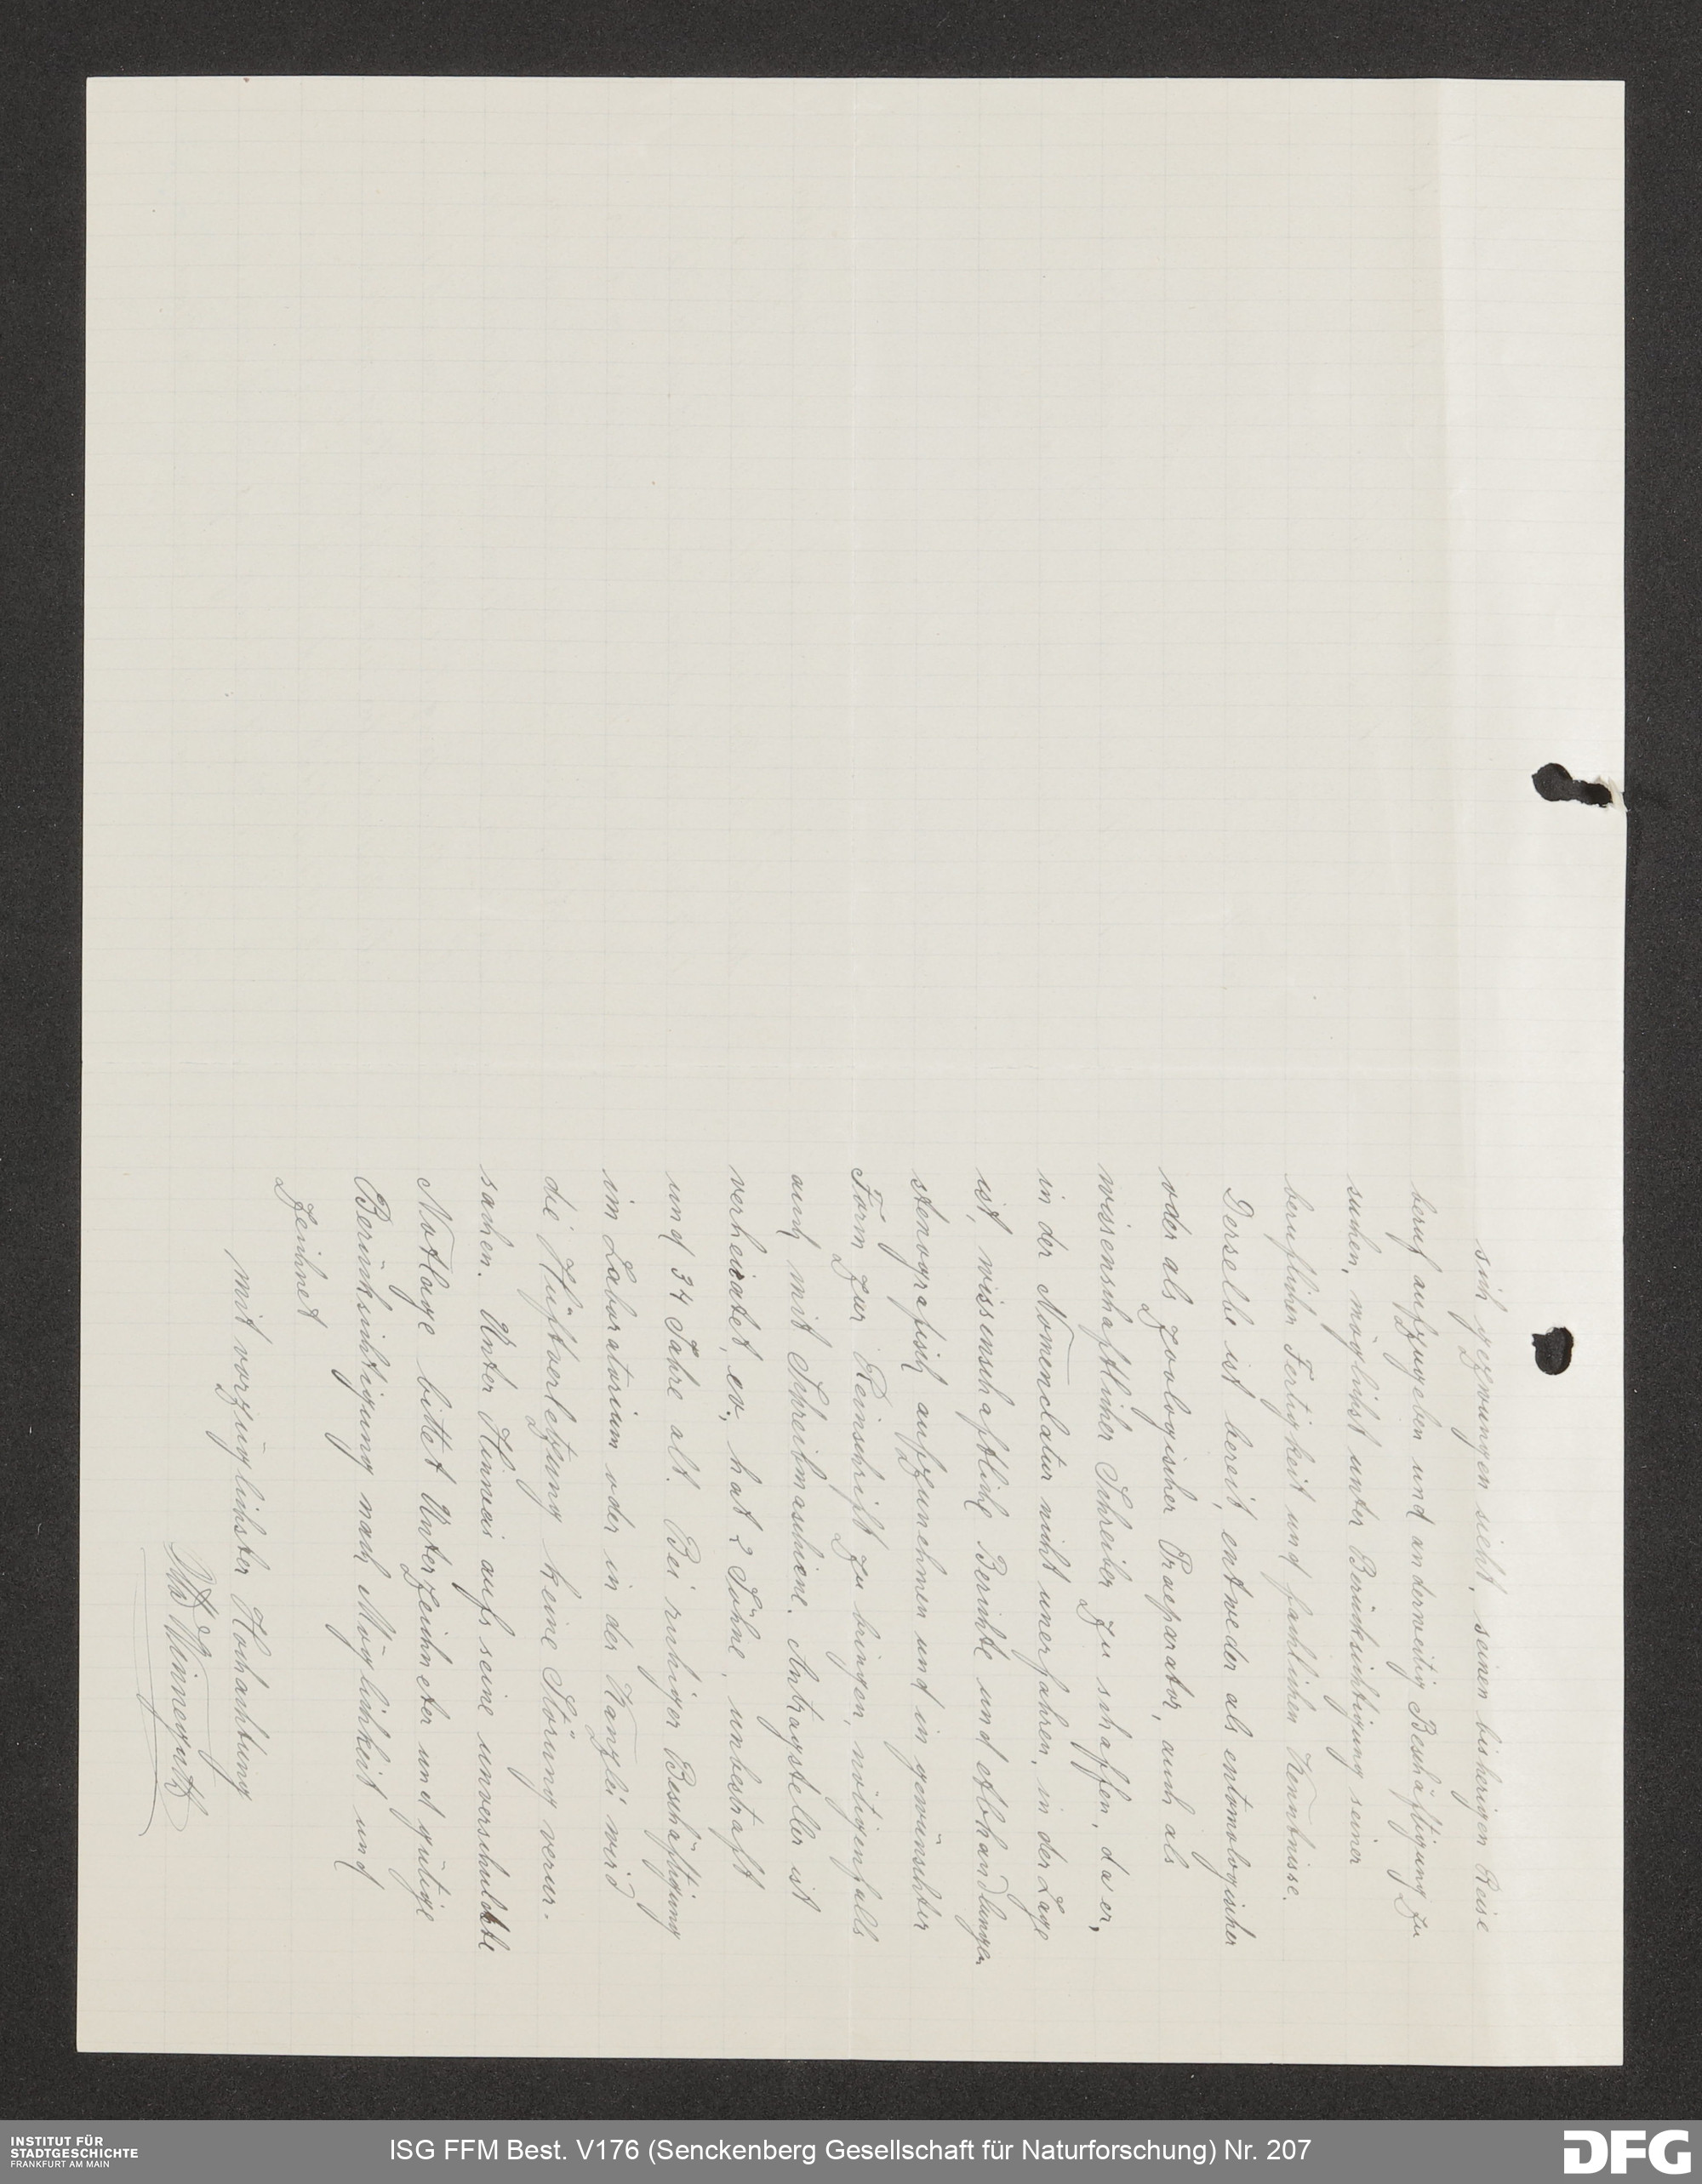 sich gezwungen sieht, seinen bisherigen Reise
beruf aufzugeben und anderweitig Beschäftigung zu
suchen, möglichst unter Berücksichtigung seiner
beruflichen Fertigkeit und fachlichen Kenntnisse.
Derselbe ist bereit, entweder als entomologischer
oder als zoologischer Praeparator, auch als
wissenschaftlicher Schreiber zu schaffen, da er,
in der Nomenclatur nicht unerfahren, in der Lage
ist, wissenschaftliche Berichte und Abhandlungen
stenografisch aufzunehmen und in gewünschter
Form zur Reinschrift zu bringen, nötigenfalls
auch mit Schreibmaschiene. Antragsteller ist
verheiratet, ev., hat 2 Söhne, unbestraft
und 34 Jahre alt. Bei ruhiger Beschäftigung
im Laboratorium oder in der Kanzlei wird
die Hüftverletzung keine Störung verur-
sachen. Unter Hinweis aufs seine unverschuldete
Notlage bittet Unterzeichneter und gütige
Berücksichtigung nach Möglichkeit und
zeichnet
mit vorzüglichster Hochachtung
Winneguth
INSTITUT FÜR
STADTGESCHICHTE
FRANKFURT AM MAIN
ISG FFM Best. V176 (Senckenberg Gesellschaft für Naturforschung) Nr. 207
DFG